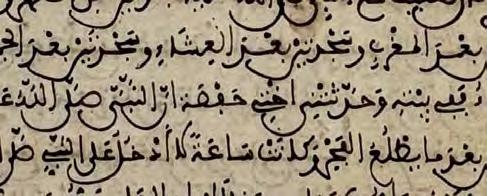 بعد المغرب وسجدتين بعد العشاء وسجدتين بعد
ففي بيته وحدثتني اختي حفصة ان النبي صلى الله
بعد ما يطلع الفجر وكانت ساعة لا أدخل على النبي صلى